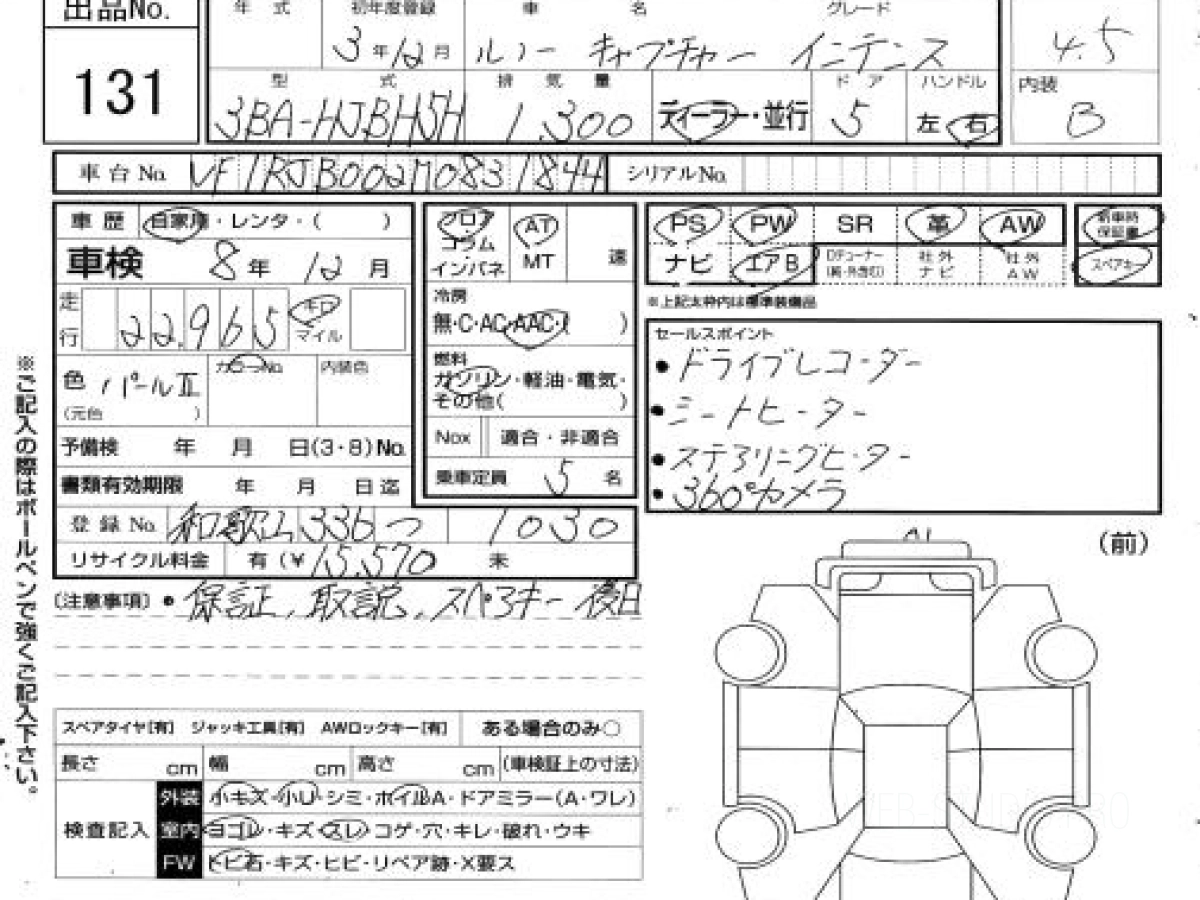 出品No.
131
年式
初年度登録
3年12月
車名
ルノー キャプチャー インテンス
グレード
4.5
型式
3BA-HJBH5H
排気量
1,300
ディーラー・並行
ドア
5
ハンドル
左・右
内装
B
車台No. VF1RJB002M0831844
シリアルNo.
車歴 自家用・レンタ・( )
車検 8年12月
走行 22,965 キロ マイル
色 パールⅡ
(元色 )
カラーNo.
内装色
予備検 年 月 日(3・8)No.
書類有効期限 年 月 日迄
登録No. 和歌山 336 つ 1030
リサイクル料金 有(¥15,570 未
フロア
コラム
インパネ
AT
MT
速
冷房
無・C・AC・AAC・( )
燃料
ガソリン・軽油・電気・
その他( )
Nox 適合・非適合
乗車定員 5 名
PS PW SR 革 AW
ナビ エアB Dチューナー 社外ナビ 社外AW
新車時保証書
スペアキー
※上記太枠内は標準装備品
セールスポイント
•ドライブレコーダー
•シートヒーター
•ステアリングヒーター
•360°カメラ
(注意事項) •保証、取説、スペアキー後日
(前)
A1
※ご記入の際はボールペンで強くご記入下さい。
スペアタイヤ[有] ジャッキ工具[有] AWロックキー[有] ある場合のみ○
長さ cm 幅 cm 高さ cm (車検証上の寸法)
検査記入
外装 小キズ・小U・シミ・ホイルA・ドアミラー(A・ワレ)
室内 ヨゴレ・キズ・スレ・コゲ・穴・キレ・破れ・ウキ
FW トビ石・キズ・ヒビ・リペア跡・X要ス